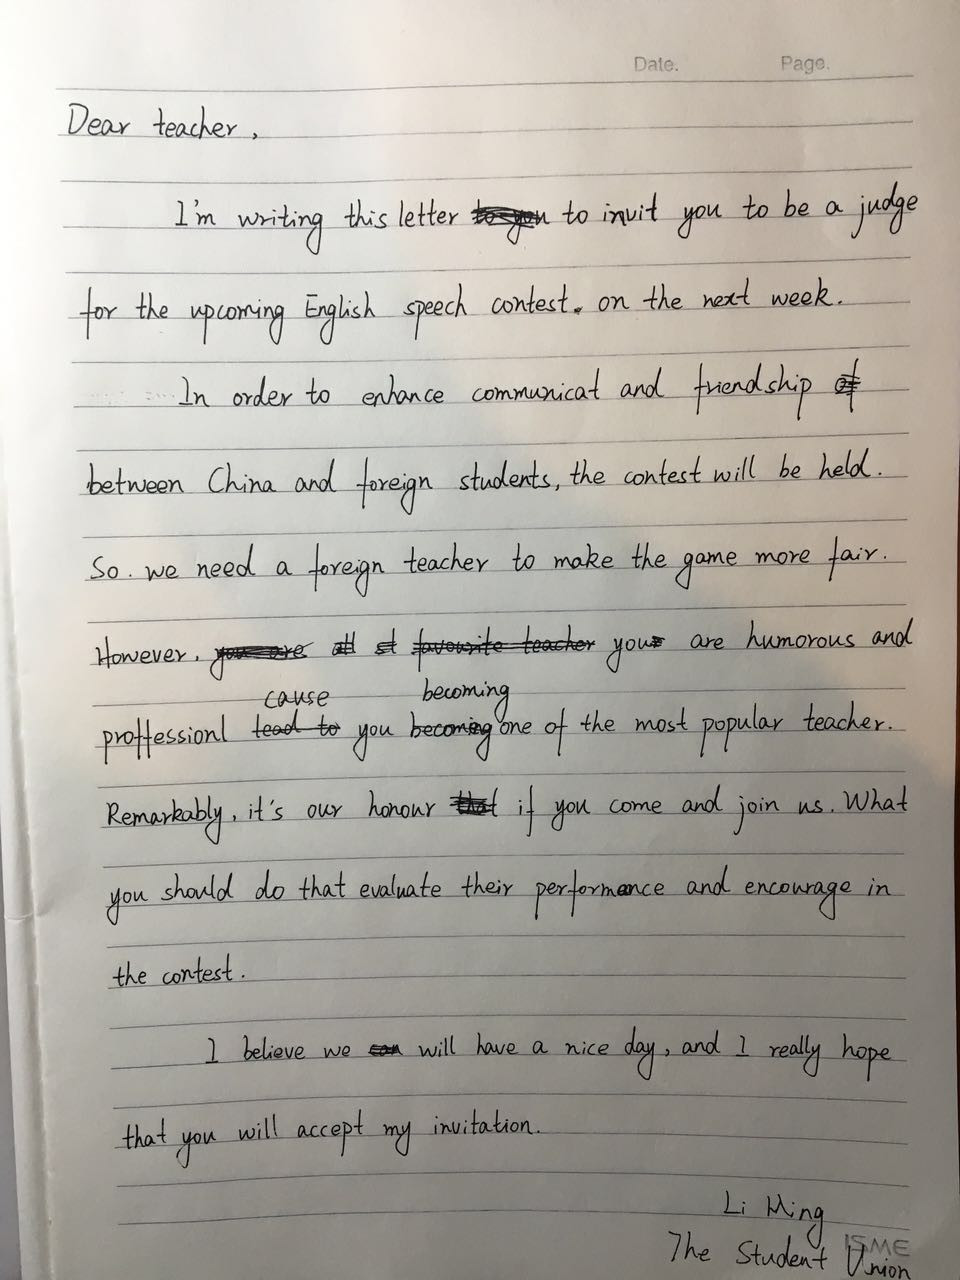 Date. Page.
Dear teacher,
I'm writing this letter to invit you to be a judge
for the upcoming English speech contest. on the next week.
In order to enhance communicat and friendship of
between China and foreign students, the contest will be held.
So. we need a foreign teacher to make the game more fair.
However, you are all st favourite teacher you are humorous and
cause becoming
proffessionl lead to you becoming one of the most popular teacher.
Remarkably, it's our honour that if you come and join us. What
you should do that evaluate their performance and encourage in
the contest.
I believe we can will have a nice day, and I really hope
that you will accept my invitation.
Li Ming
The Student Union
ISME